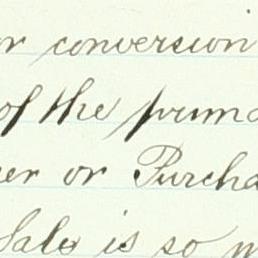 or conversion
of the prima
er or Purcha
Sale is so m